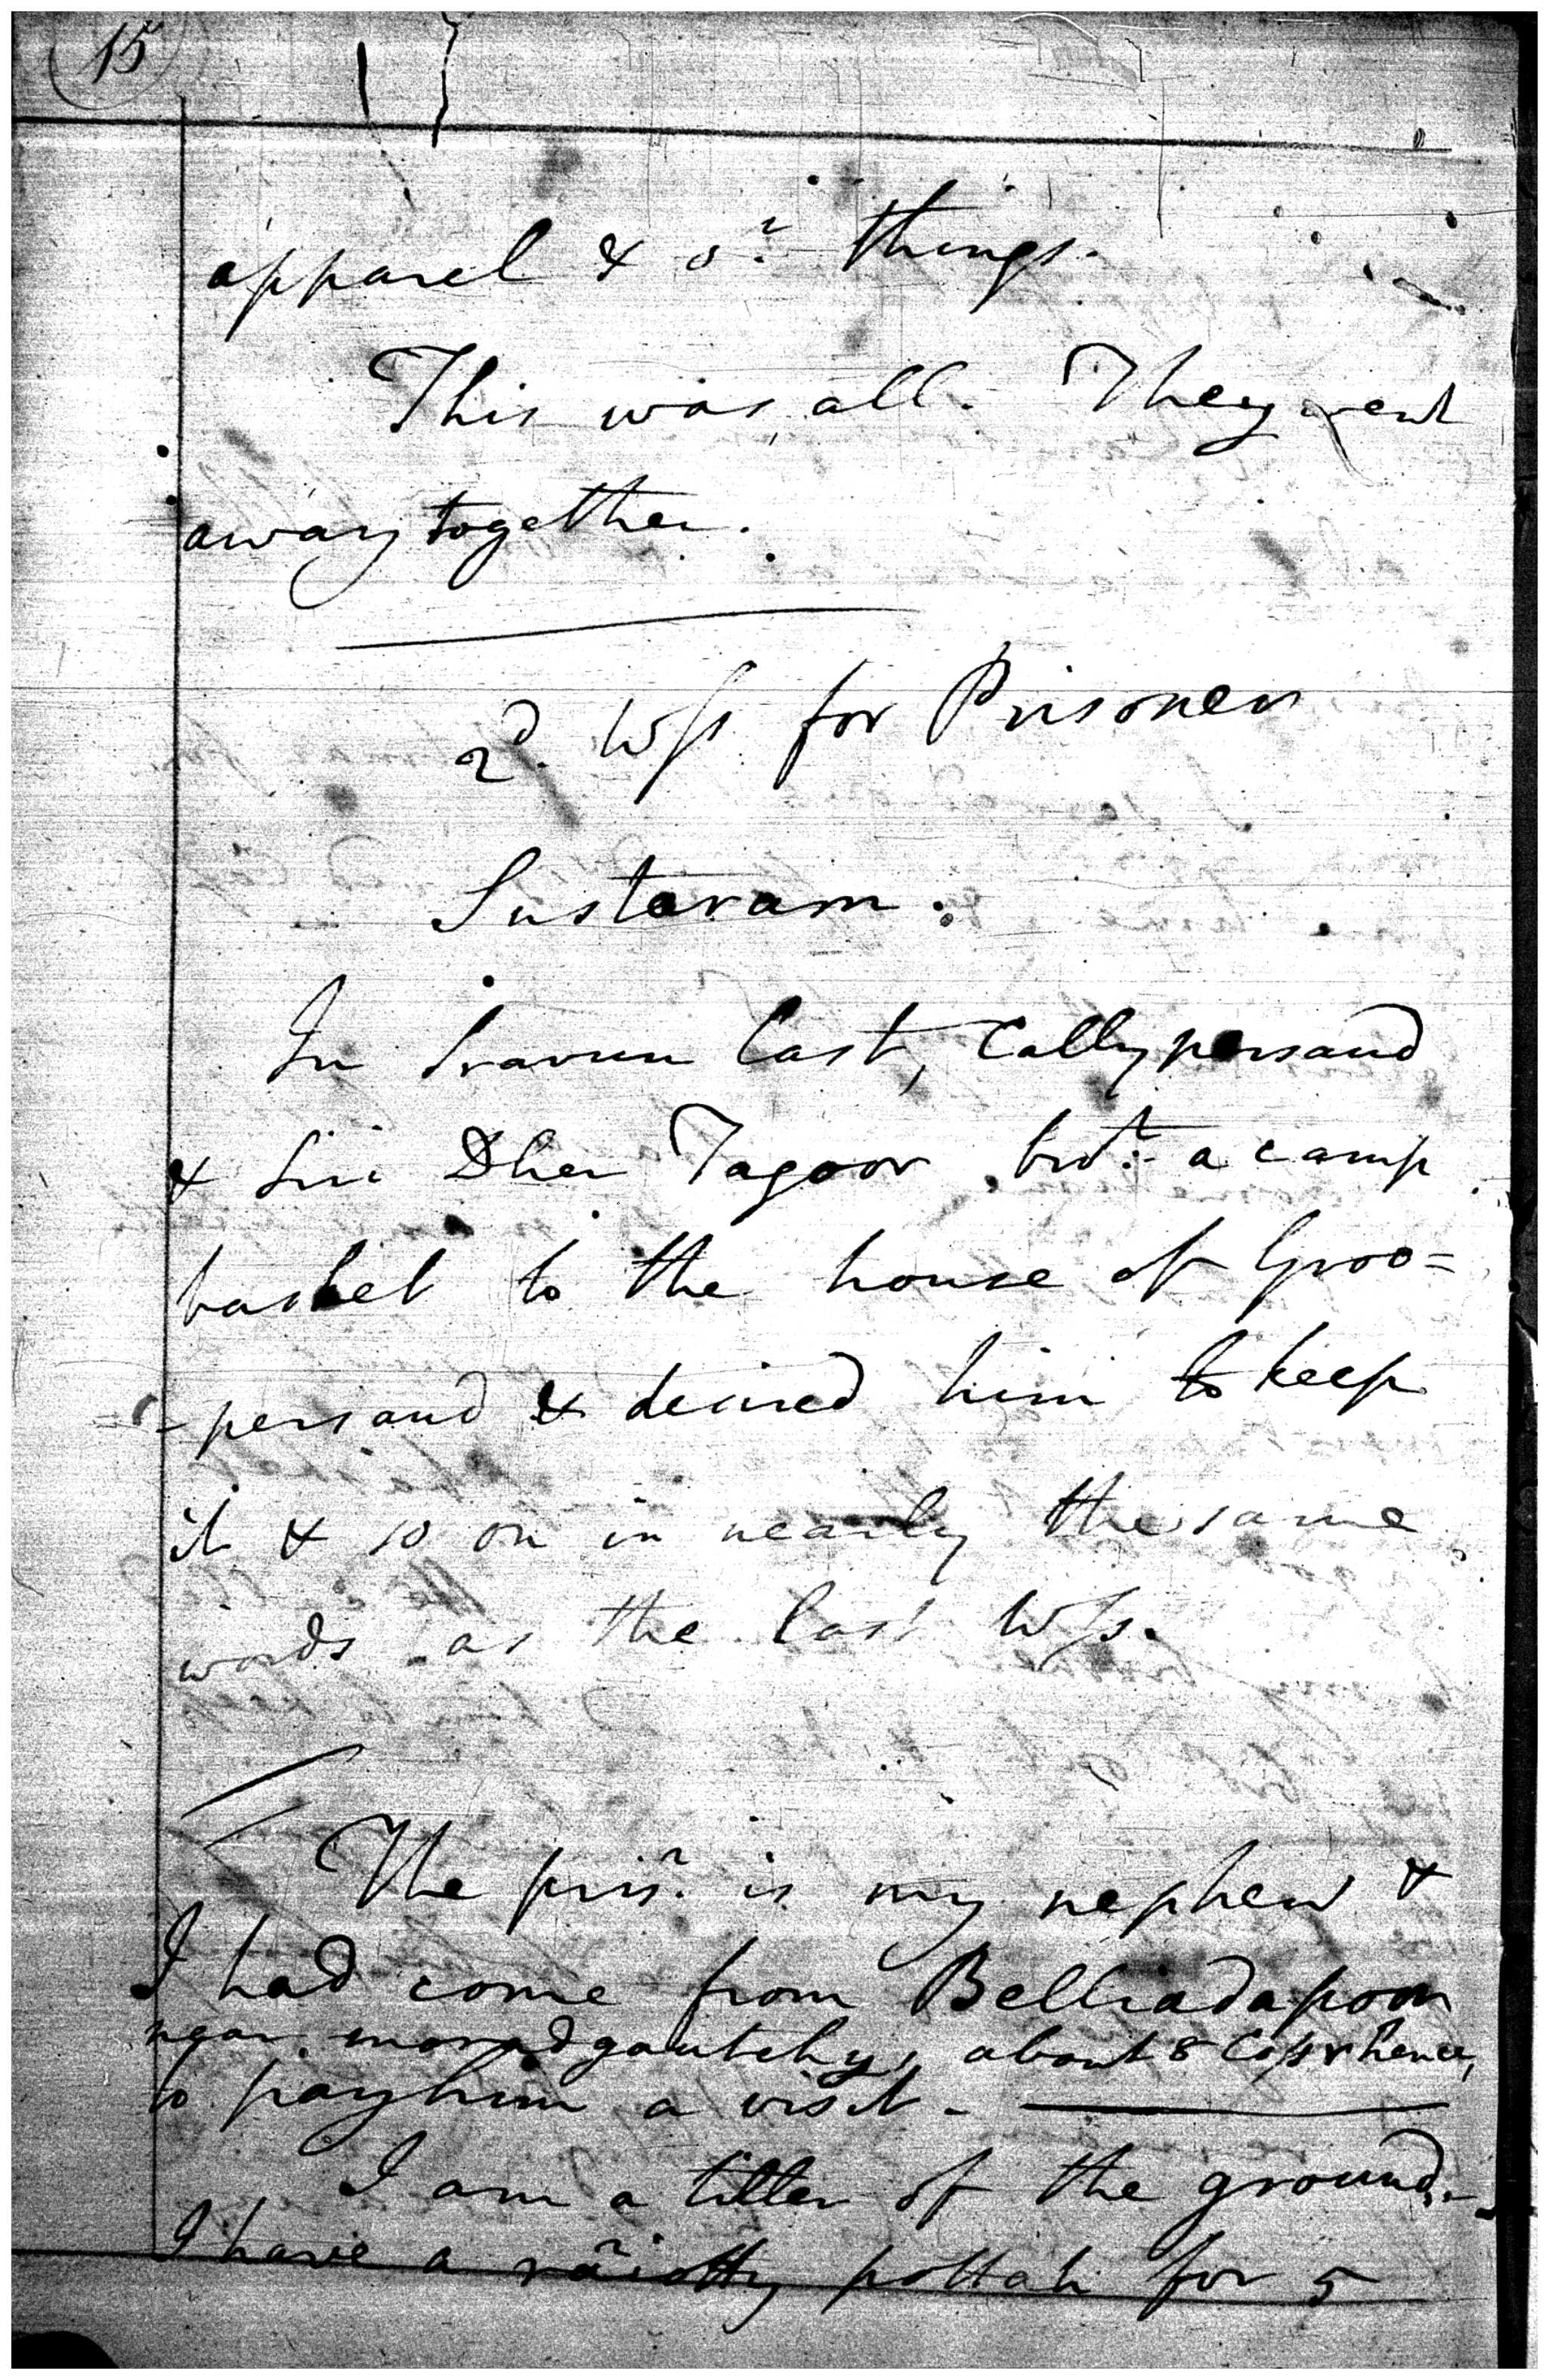 15
apparel & or. things.
This was all. They went
away together.
2d. Wss for Prisoner
Sustaram.
In Sravun last, Callypersaud
& Siri Dher Tagoor brot. a camp
basket to the house of Groo=
-persaud & desired him to keep
it & so on in nearly the same
words as the last Wss.
The prisr. is my nephew &
I had come from Belliadapoor
near moradgautchy, about 8 Coss hence,
to pay him a visit. -
I am a tiller of the ground. -
I have a raiotty pottah for 5